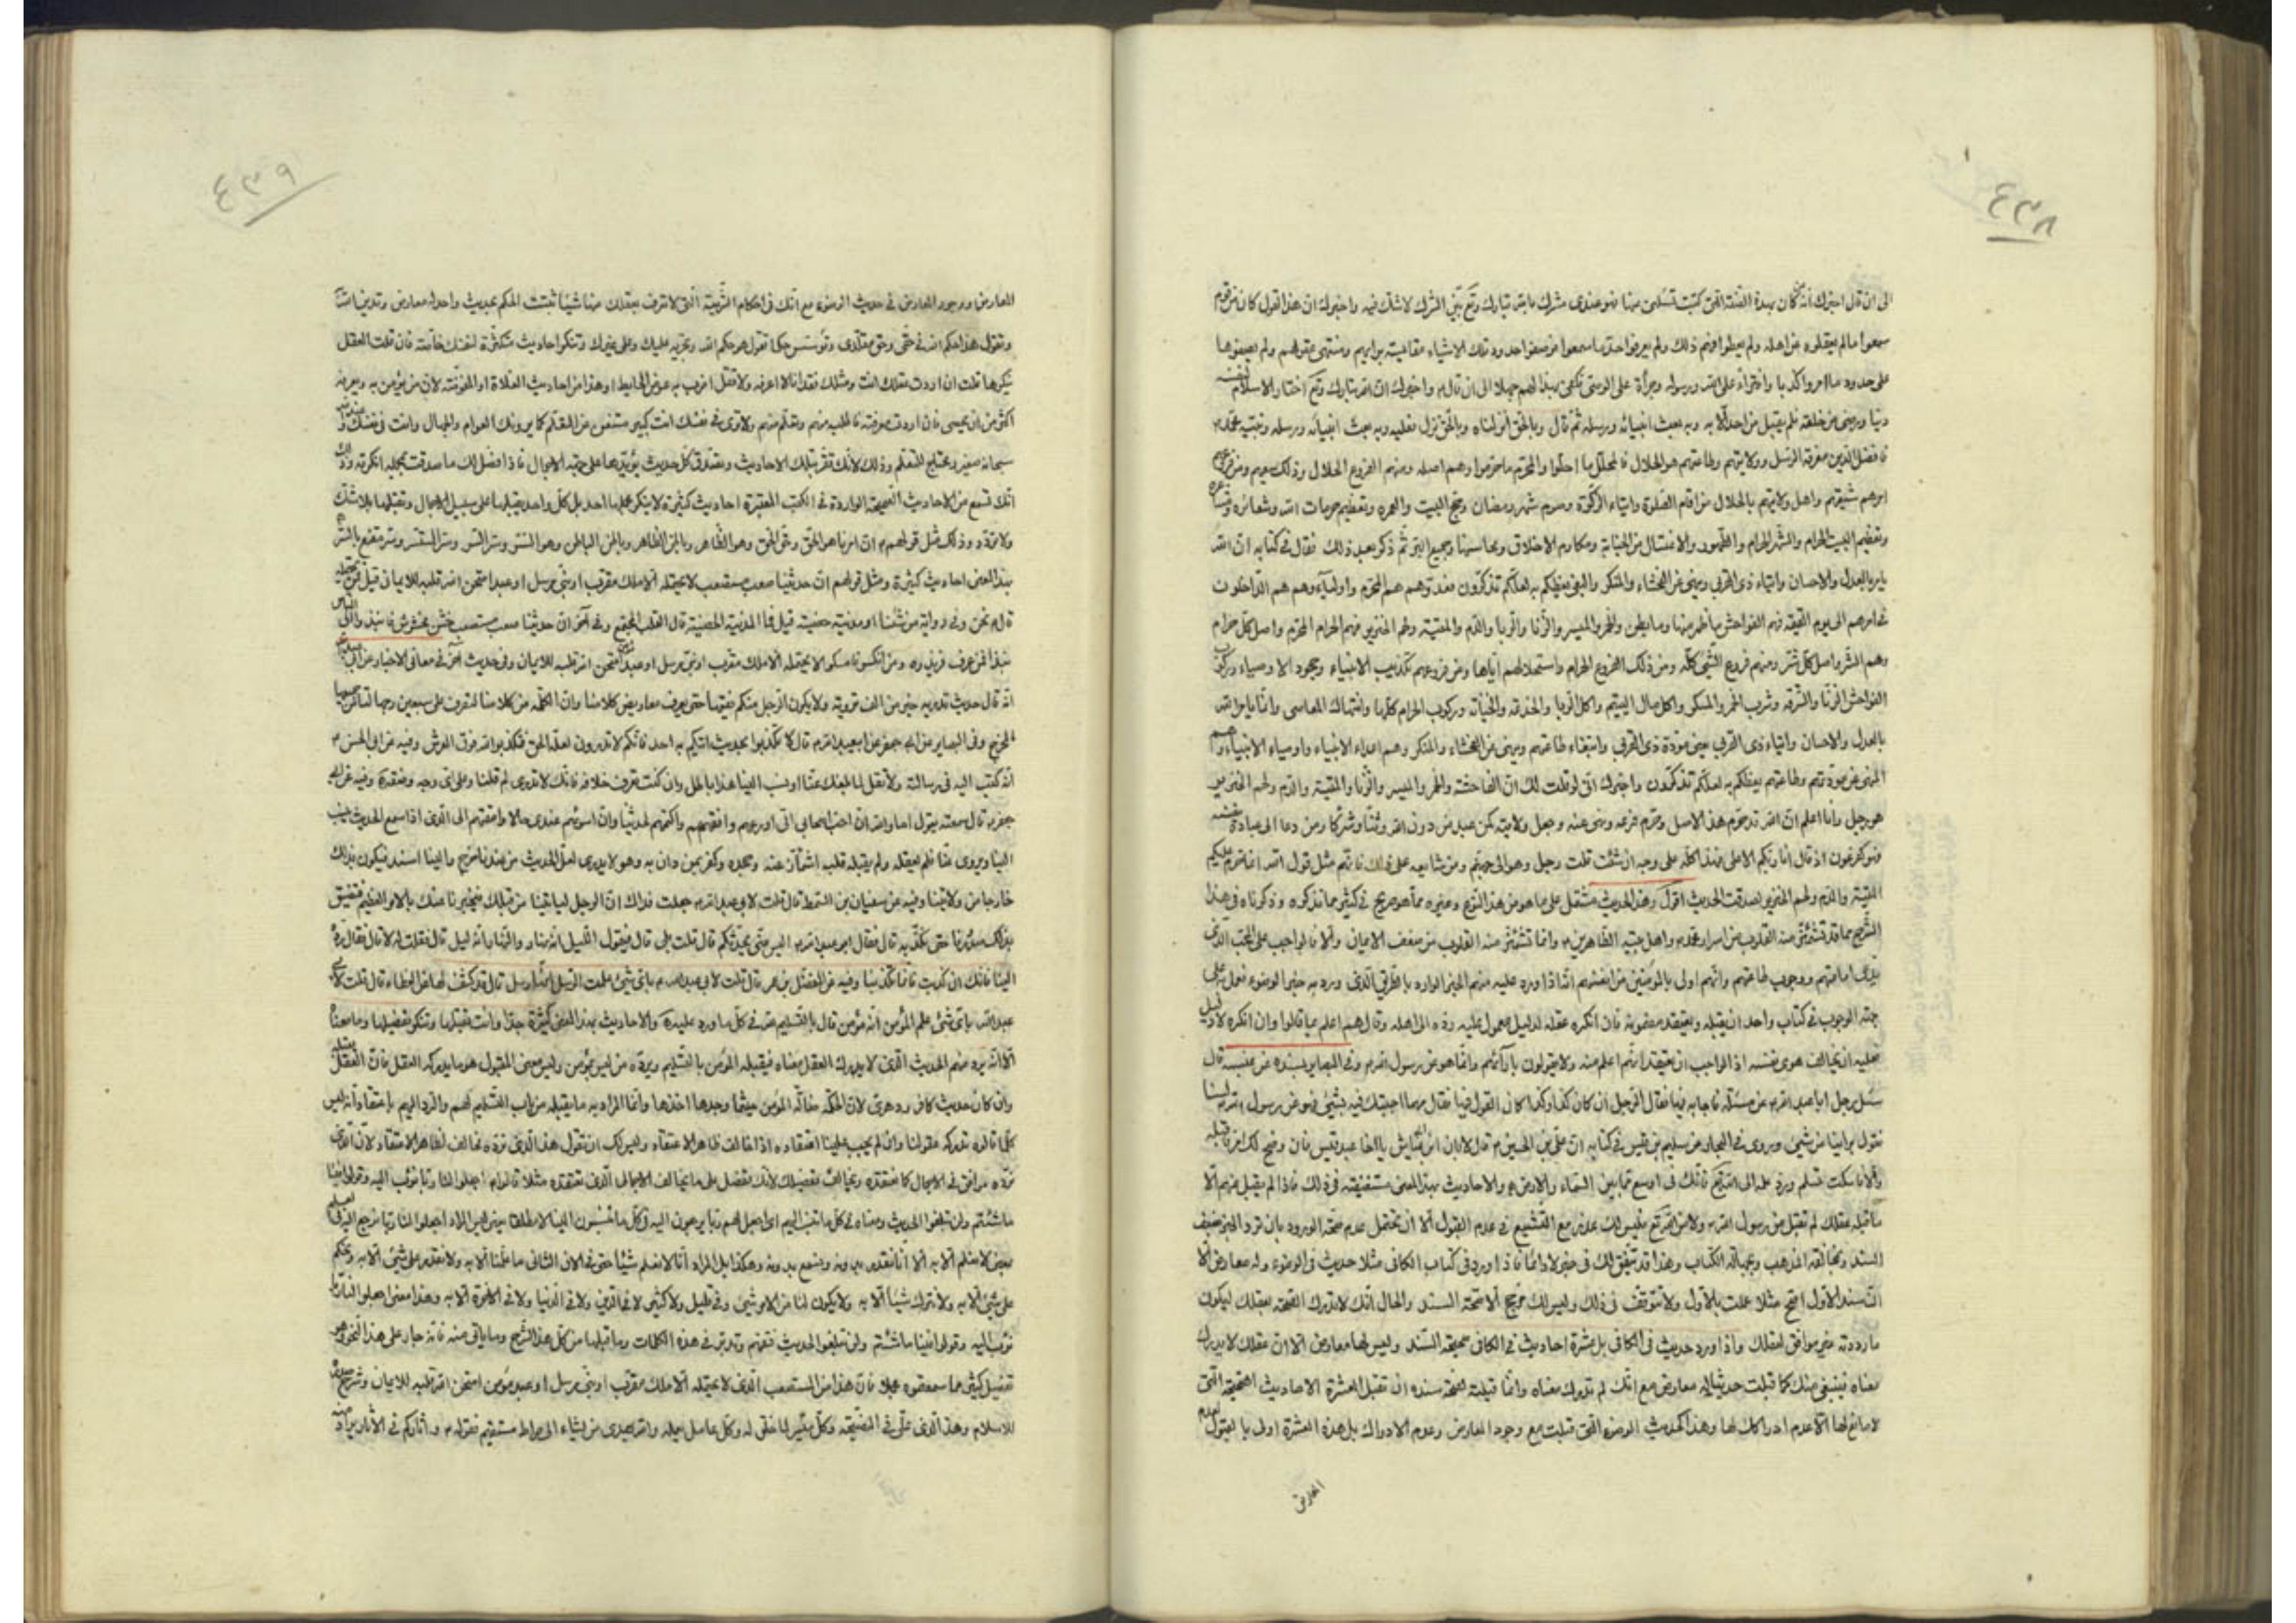 ٤٣٨
الى ان قال اخبرك انه من كان يدين بهذه الصفة التي كتبت تسئلني عنها فهو عندي مشرك بالله تبارك وتعالى بيّن الشرك لاشك فيه واخبرك ان هذا القول كان من قوم
سمعوا مالم يعقلوه عن اهله ولم يعطوا فهم ذلك ولم يعرفوا حدّ ما سمعوا فوضعوا حدود تلك الاشياء مقايسة برايهم ومنتهى عقولهم ولم يضعوها
على حدود ما امروا كذبا وافتراء على الله ورسوله وجرأة على المعاصي فكفى بهذا لهم جهلا الى ان قال واخبرك ان الله تبارك وتعالى اختار الاسلام لنفسه
دينا ورضي من خلقه فلم يقبل من احد الا به وبه بعث انبيائه ورسله ثم قال وبالحق انزلناه وبالحق نزل فعليه وبه بعث انبيائه ورسله ونبيه محمد
فافضل الدين معرفة الرسل وولايتهم وطاعتهم هو الحلال فالمحلل ما احلوا والمحرم ما حرموا وهم اصله ومنهم الفروع الحلال وذلك سعيهم ومن فروعهم
امرهم شيعتهم واهل ولايتهم بالحلال من اقام الصلوة وايتاء الزكوة وصوم شهر رمضان وحج البيت والعمرة وتعظيم حرمات الله وشعائره ومشاعره
وتعظيم البيت الحرام والشهر الحرام والطهور والاغتسال من الجنابة ومكارم الاخلاق ومحاسنها وجميع البر ثم ذكر بعد ذلك فقال في كتابه ان الله
يامر بالعدل والاحسان وايتاء ذي القربى وينهى عن الفحشاء والمنكر والبغي يعظكم لعلكم تذكرون فعدوهم هم المحرم واوليائهم هم الداخلون
في امرهم الى يوم القيمة فهم الفواحش ما ظهر منها وما بطن والخمر والميسر والزنا والربا والدم والميتة ولحم الخنزير فهم الحرام المحرم واصل كل حرام
وهم الشر واصل كل شر ومنهم فروع الشر كله ومن ذلك الفروع الحرام واستحلالهم اياها ومن فروعهم تكذيب الانبياء وجحود الاوصياء وركوب
الفواحش الزنا والسرقة وشرب الخمر والمسكر واكل مال اليتيم واكل الربا والخدعة والخيانة وركوب الحرام كلها وانتهاك المعاصي وانما يامر الله
بالعدل والاحسان وايتاء ذي القربى يعني مودة ذي القربى وابتغاء طاعتهم وينهى عن الفحشاء والمنكر وهم اعداء الانبياء واوصياء الانبياء وهم
المنهي عن مودتهم وطاعتهم يعظكم به لعلكم تذكرون واخبرك اني لو قلت لك ان الفاحشة والخمر والميسر والزنا والميتة والدم ولحم الخنزير
هو رجل وانا اعلم ان الله قد حرم هذا الاصل وحرم فرعه ونهى عنه وجعل ولايته كمن عبد من دون الله وثنا وشركا ومن دعا الى عبادة نفسه
فهو كفرعون اذ قال انا ربكم الاعلى فهذا كله على وجه ان شئت قلت رجل وهو الى جهنم ومن شايعه على ذلك فانهم مثل قول الله انما حرم عليكم
الميتة والدم ولحم الخنزير لصدقت الحديث اقول وهذا الحديث مشتمل على ما هو من هذا النوع وغيره مما هو صريح في كثير مما نذكره وذكرناه في هذا
الشرح مما قد تشمئز منه القلوب من اسرار محمد واهل بيته الطاهرين وانما تشمئز منه القلوب من ضعف الايمان والا فالواجب على المحب الذي
جهة الوجوب في كتاب واحد ان يقبله ويعتقد مضمونه فان انكره عقله لدليل معمول عليه رده الى اهله وقال هم اعلم بما قالوا وان انكره لا لدليل
فعليه ان يخالف هوى نفسه اذ الواجب ان يعتقد انهم اعلم منه ولا يقولون بآرائهم وانما هو من رسول الله وفي البصاير بسنده عن عنبسة قال
سئل رجل ابا عبد الله عن مسئلة فاجابه فيها فقال الرجل ان كان كذا وكذا كان القول فيها فقال مهما اجبتك فيه بشئ فهو عن رسول الله لسنا
نقول براينا من شئ وروي في البحار من سليم بن قيس في كتابه ان علي بن الحسين قال لابان ابن ابي عياش يا اخا عبد قيس فان وضح لك امر فاقبله
والا فاسكت تسلم ورد علمه الى الله فانك في اوسع مما بين السماء والارض والاحاديث بهذا المعنى مستفيضة في ذلك فاذا لم يقبل منهم الا
ما قبله عقلك لم تقبل من رسول الله ولا من الله تعالى فليس لك عذر مع التشيع في عدم القبول الا ان تحتمل عدم صحة الورود بان ترد الخبر لضعف
السند ومخالفة المذهب ومخالفة الكتاب وهذا قد يتفق لك في خبر لا دائما فاذا ورد في كتاب الكافي مثلا حديث في الوضوء وله معارض الا
ان سند الاول اصح مثلا عملت بالاول ولا تتوقف في ذلك وليس لك مرجح الا صحة السند والحال انك لا تدرك الصحة بعقلك ليكون
ما رددته غير موافق لعقلك واذا ورد حديث في الكافي بل عشرة احاديث في الكافي صحيحة السند وليس لها معارض الا ان عقلك لا يدرك
معناه فينبغي منك كما قبلت حديثا له معارض مع انك لم تدرك معناه وانما قبلته لصحة سنده ان تقبل العشرة الاحاديث الصحيحة التي
لا مانع لها الا عدم ادراكك لها وهذا كحديث الوضوء التي قبلت مع وجود المعارض وعدم الادراك بل هذه العشرة اولى بالقبول لعدم
المعارض
٤٣٩
المعارض ووجود المعارض في حديث الوضوء مع انك في احكام الشريعة التي لا تعرف بعقلك منها شيئا تثبت الحكم بحديث واحد له معارض وتدين الله
وتقول هذا حكم الله في حقي وحق مقلدي
نيكرها قلت ان اردت عقلك انت ومثلك فقد انا لا اعرفه ولا تقل اضرب به عرض الحايط او هذا من احاديث الغلاة او المفوضة لان من يؤمن به ويعرفه
اكثر من ان يحصى فان اردت معرفته فاطلب منهم وتعلم منهم ولا ترى في نفسك انت كبير مستغن عن التعلم كما يرونك العوام والجهال وانت في نفسك
انك تسمع من الاحاديث الصحيحة الواردة في الكتب المعتبرة احاديث كثيرة لا ينكر مجملها احد بل كل واحد يقبلها على سبيل الاجمال وتقبلها بلا شك
ولا تردد وذلك مثل قولهم ان امرنا هو الحق وحق الحق وهو الظاهر وباطن الظاهر وباطن الباطن وهو السر وسر السر وسر المستسر وسر مقنع بالسر
بهذا المعنى احاديث كثيرة ومثل قولهم ان حديثنا صعب مستصعب لا يحتمله الا ملك مقرب او نبي مرسل او عبد امتحن الله قلبه للايمان قيل فمن يحتمله
قال نحن وفي رواية من شئنا او مدينة حصينة قيل فما المدينة الحصينة قال القلب المجتمع وفي آخر ان حديثنا صعب مستصعب خشن مخشوش فانبذوا الى الناس
نبذا فمن عرف فزيدوه ومن انكر فامسكوا لا يحتمله الا ملك مقرب او نبي مرسل او عبد مؤمن امتحن الله قلبه للايمان وفي حديث آخر في معاني الاخبار عن ابي عبد الله
انه قال حديث تدريه خير من الف ترويه ولا يكون الرجل منكم فقيها حتى يعرف معاريض كلامنا وان الكلمة من كلامنا لتصرف على سبعين وجها لنا من جميعها
المخرج وفي البصاير عن ابي جعفر او عن ابي عبد الله قال لا تكذبوا بحديث اتيكم به احد فانكم لا تدرون لعله الحق فتكذبوا الله فوق العرش وفيه عن ابي الحسن
انه كتب اليه في رسالة ولا تقل لما بلغك عنا او نسب الينا هذا باطل وان كنت تعرف خلافه فانك لا تدري لم قلنا وعلى اي وجه وصفة وفيه عن ابي
جعفر قال سمعته يقول اما والله ان احب اصحابي الي اورعهم وافقههم واكتمهم لحديثنا وان اسوئهم عندي حالا وامقتهم الى الذي اذا سمع الحديث ينسب
الينا ويروى عنا فلم يعقله ولم يقبله قلبه اشمأز عنه وجحده وكفر بمن دان به وهو لا يدري لعل الحديث من عندنا خرج والينا اسند فيكون بذلك
خارجا من ولايتنا وفيه عن سفيان بن السمط قال قلت لابي عبد الله جعلت فداك ان الرجل لياتينا من قبلك فيخبرنا عنك بالامر العظيم فيضيق
بذلك صدورنا حتى نكذبه قال فقال ابو عبد الله اليس عني يحدثكم قال قلت بلى قال فيقول الليل انه نهار والنهار انه ليل قال فقلت له لا قال فقال رده
الينا فانك ان كذبت فانما تكذبنا وفيه عن المفضل بن عمر قال قلت لابي عبد الله باي شئ علمت الرسل انها رسل قال قد كشف لها عن الغطاء قال قلت لابي
عبد الله باي شئ علم المؤمن انه مؤمن قال بالتسليم لله في كل ما ورد عليه والاحاديث بهذا المعنى كثيرة جدا وانت تقبلها وتنكر تفصيلها وما معناه
الا انه يرد منهم الحديث الذي لا يدرك العقل معناه فيقبله المؤمن بالتسليم ويرده من ليس بمؤمن وليس معنى المقبول هو ما يدركه العقل فان العقل يقبله
وان كان حديث كافر ودهري لان الحكمة ضالة المؤمن حيثما وجدها اخذها وانما المراد به ما يقبله من باب التسليم لهم والرد اليهم باعتقاد انه ليس
كلما قالوه تدركه عقولنا وان لم يجب علينا اعتقاده اذا خالف ظاهر الاعتقاد وليس لك ان تقول هذا الذي نرده مخالف لظاهر الاعتقاد لان الذي
ترده موافق في الاجمال كما نعتقده ويخالف تفصيلك لانك تفصل على ما يخالف الاجمال الذي تعتقده مثلا قالوا اجعلوا لنا ربا نؤب اليه وقولوا فينا
على شئ الا به ولا نترك شيئا الا به ولا يكون لنا من الامر شئ وفي قليل ولا كثير لا في الدين ولا في الدنيا ولا في الاخرة الا به وهذا معنى اجعلوا لنا ربا
نؤب اليه وقولوا فينا ما شئتم ولن تبلغوا الحديث فتفهم وتدبر في هذه الكلمات وما قبلها من كل هذا الشرح وما ياتي منه فانه جار على هذا النحو
تفصيل كثير مما سمعتموه مجملا فان هذا من المستصعب الذي لا يحتمله الا ملك مقرب او نبي مرسل او عبد مؤمن امتحن الله قلبه للايمان وشرح صدره
للاسلام وهذا الذي علي في النصيحة وكل ميسر لما خلق له وكل عامل بعمله والله يهدي من يشاء الى صراط مستقيم فقوله وآثاركم في الآثار يراد منه